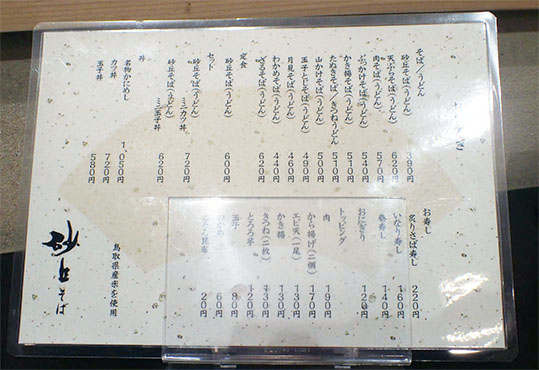 そば/うどん
砂丘そば(うどん) 390円
天ぷらそば(うどん) 620円
肉そば(うどん) 570円
ぶっかけそば(うどん) 540円
かき揚そば(うどん) 510円
たぬきそば/きつねうどん 510円
山かけそば(うどん) 500円
玉子とじそば(うどん) 490円
月見そば(うどん) 460円
わかめそば(うどん) 440円
ざるそば(うどん) 620円
定食
砂丘そば(うどん) 600円
セット
砂丘そば(うどん)
ミニカツ丼 720円
砂丘そば(うどん)
ミニ玉子丼 620円
丼
名物かにめし 1,050円
カツ丼 720円
玉子丼 580円
お寿し
炙りさば寿し 220円
いなり寿し 160円
巻寿し 140円
おにぎり 120円
トッピング
肉 190円
から揚げ(二個) 170円
エビ天(一尾) 130円
かき揚 130円
きつね(二枚) 130円
とろろ芋 120円
玉子 80円
わかめ 60円
とろろ昆布 20円
鳥取県産米を使用
砂丘そば